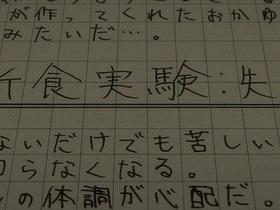 が作ってくれたおかゆ
みたいだ…。
食実験:失
ないだけでも苦しい
らなくなる。
の体調が心配だ。